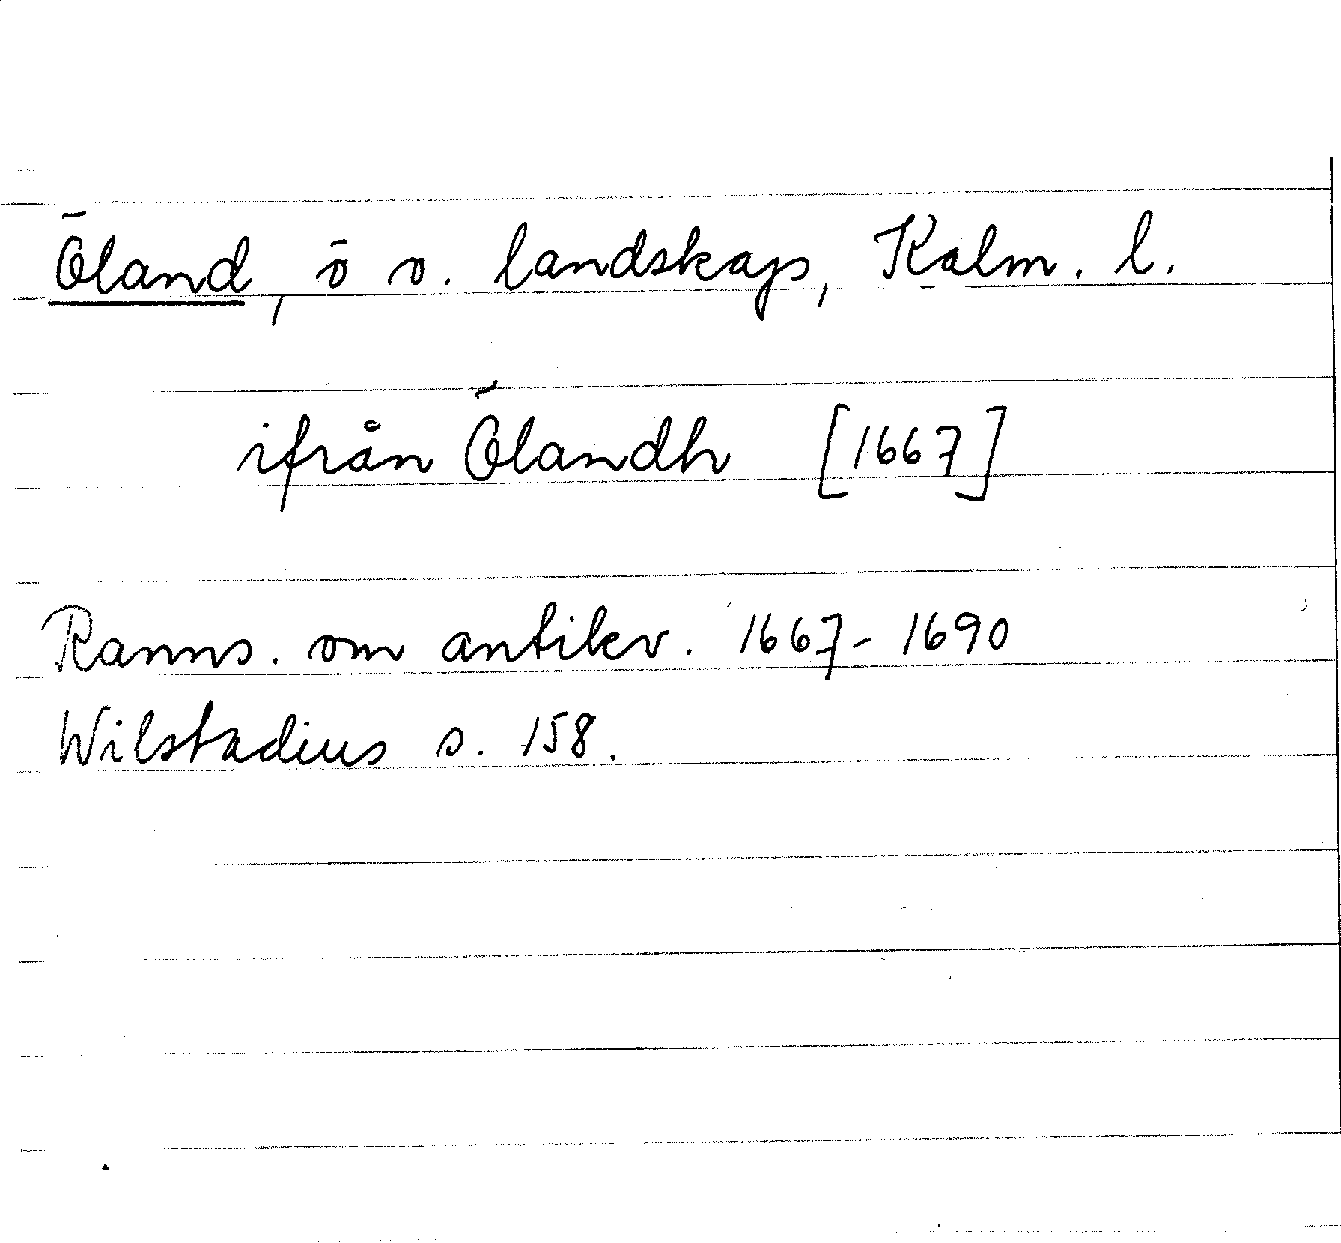 Öland, ö o. landskap, Kalm. l.
ifrån Ölandh [1667]
Ranns. om antikv. 1667-1690
Wilstadius s. 158.